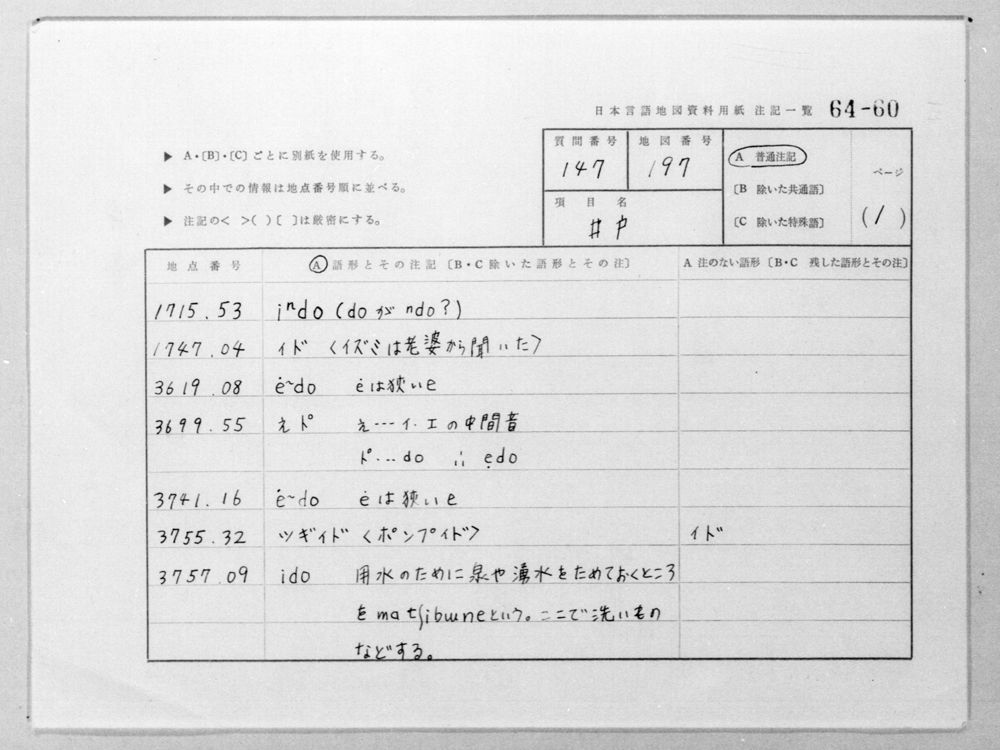 日本言語地図資料用紙 注記一覧 64-60
▶ A・〔B〕・〔C〕ごとに別紙を使用する。
▶ その中での情報は地点番号順に並べる。
▶ 注記の< >( )〔 〕は厳密にする。
質問番号 地図番号
147 197
項目名
井戸
A 普通注記
〔B 除いた共通語〕
〔C 除いた特殊語〕
ページ
(1)
地点番号 A 語形とその注記〔B・C 除いた語形とその注〕 A 注のない語形〔B・C 残した語形とその注〕
1715.53 iⁿdo (doがndo?)
1747.04 イド 〈イズミは老婆から聞いた〉
3619.08 ė~do ėは狭いe
3699.55 ぇド ぇ…イ・エの中間音
ド…do ∴ ẹdo
3741.16 ė~do ėは狭いe
3755.32 ツギイド〈ポンプイド〉 イド
3757.09 ido 用水のために泉や湧水をためておくところ
をmatʃibɯneという。ここで洗いもの
などする。